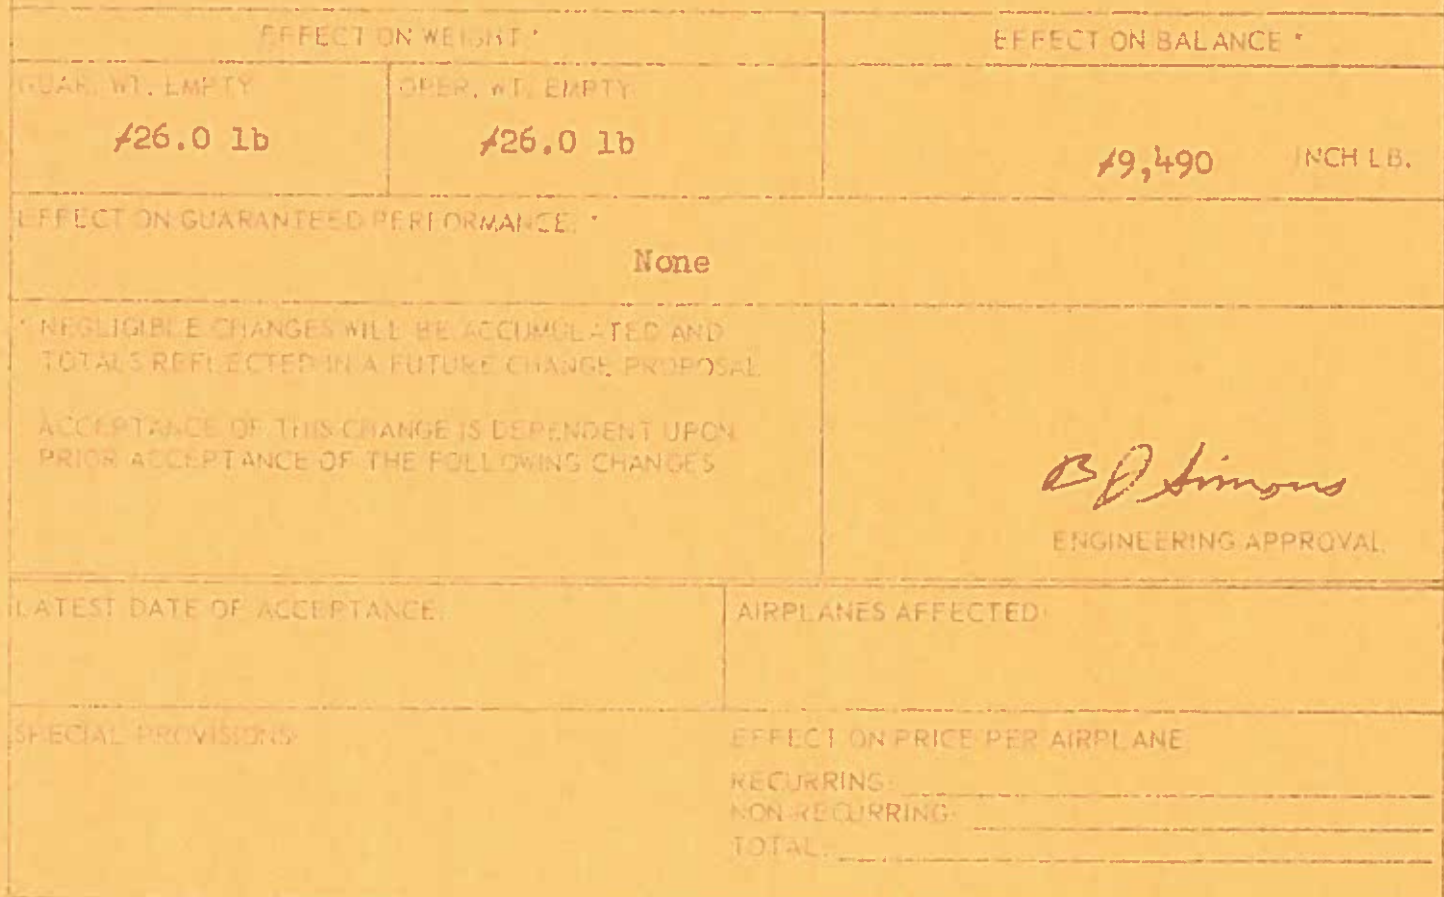 EFFECT ON WEIGHT * EFFECT ON BALANCE *
GUAR. WT. EMPTY OPER. WT. EMPTY
/26.0 lb /26.0 lb /9,490 INCH LB.
EFFECT ON GUARANTEED PERFORMANCE: *
None
* NEGLIGIBLE CHANGES WILL BE ACCUMULATED AND
TOTALS REFLECTED IN A FUTURE CHANGE PROPOSAL
ACCEPTANCE OF THIS CHANGE IS DEPENDENT UPON
PRIOR ACCEPTANCE OF THE FOLLOWING CHANGES
B J Simons
ENGINEERING APPROVAL
LATEST DATE OF ACCEPTANCE: AIRPLANES AFFECTED:
SPECIAL PROVISIONS: EFFECT ON PRICE PER AIRPLANE
RECURRING:
NON-RECURRING:
TOTAL: